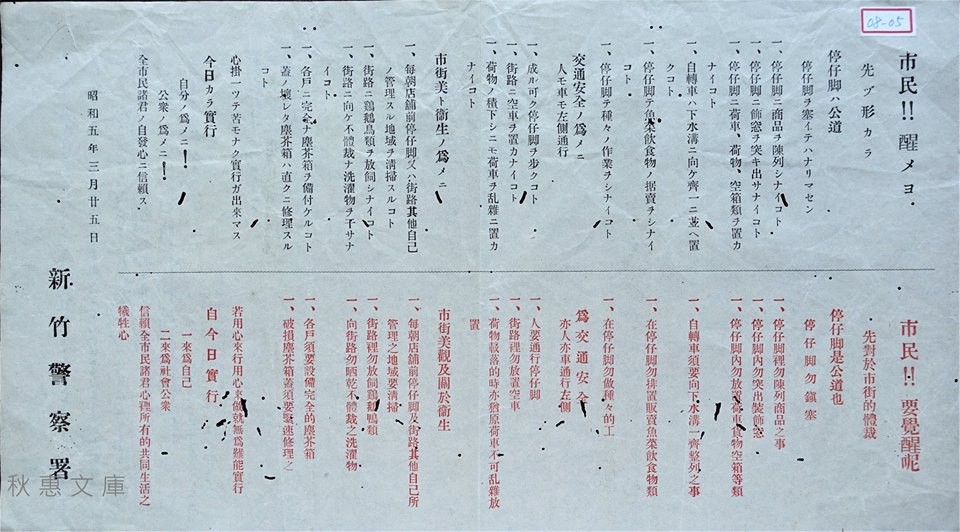 08-05
市民!! 醒メヨ.
先ヅ形カラ
停仔脚ハ公道
停仔脚ヲ塞イデハナリマセン
一、停仔脚ニ商品ヲ陳列シナイコト
一、停仔脚ニ飾窓ヲ突キ出サナイコト
一、停仔脚ニ荷車、荷物、空箱類ヲ置カ
ナイコト
一、自轉車ハ下水溝ニ向ケ齊一ニ並ベ置
クコト
一、停仔脚デ魚菜飲食物ノ据賣ヲシナイ
コト
一、停仔脚デ種々ノ作業ヲシナイコト
交通安全ノ爲メニ
人モ車モ左側通行
一、成ル可ク停仔脚ヲ歩クコト
一、街路ニ空車ヲ置カナイコト
一、荷物ノ積下シニモ荷車ヲ乱雜ニ置カ
ナイコト
市街美ト衞生ノ爲メニ
一、毎朝店舖前停仔脚又ハ街路其他自己
ノ管理スル地域ヲ清掃スルコト
一、街路ニ鷄鵝鳥類ヲ放飼シナイコト
一、街路ニ向ケ不體裁ナ洗濯物ヲ干サナ
イコト
一、各戸ニ完全ナ塵芥箱ヲ備付ケルコト
一、蓋ノ壊レタ塵芥箱ハ直クニ修理スル
コト
心掛一ツデ苦モナク實行ガ出來マス
今日カラ實行
自分ノ爲メニ!
公衆ノ爲メニ!
全市民諸君ノ自發心ニ信賴ス
昭和五年三月廿五日
新竹警察署
市民!! 要覺醒呢
先對於市街的體裁
停仔脚是公道也
停仔脚勿鎭塞
一、停仔脚裡勿陳列商品之事
一、停仔脚內勿突出裝飾窓
一、停仔脚內勿放置荷車貨物空箱等類
一、自轉車須要向下水溝一齊整列之事
一、在停仔脚勿排置販賣魚菜飲食物類
一、在停仔脚勿做種々的工
爲交通安全
亦人亦車通行左側
一、人要通行停仔脚
一、街路裡勿放置空車
一、荷物起落的時亦猶原荷車不可乱雜放
置
市街美觀及關於衞生
一、每朝店舖前停仔脚及街路其他自己所
管理之地域要清掃
一、街路裡勿放飼鷄鵝鴨類
一、向街路勿晒乾不體裁之洗濯物
一、各戸須要設備完全的塵芥箱
一、破損塵芥箱蓋須要緊速修理之
若用心來行用心來做就無爲難能實行
自今日實行
一來爲自己
二來爲社會公衆
信賴全市民諸君心裡所有的共同生活之
犧牲心
秋惠文庫